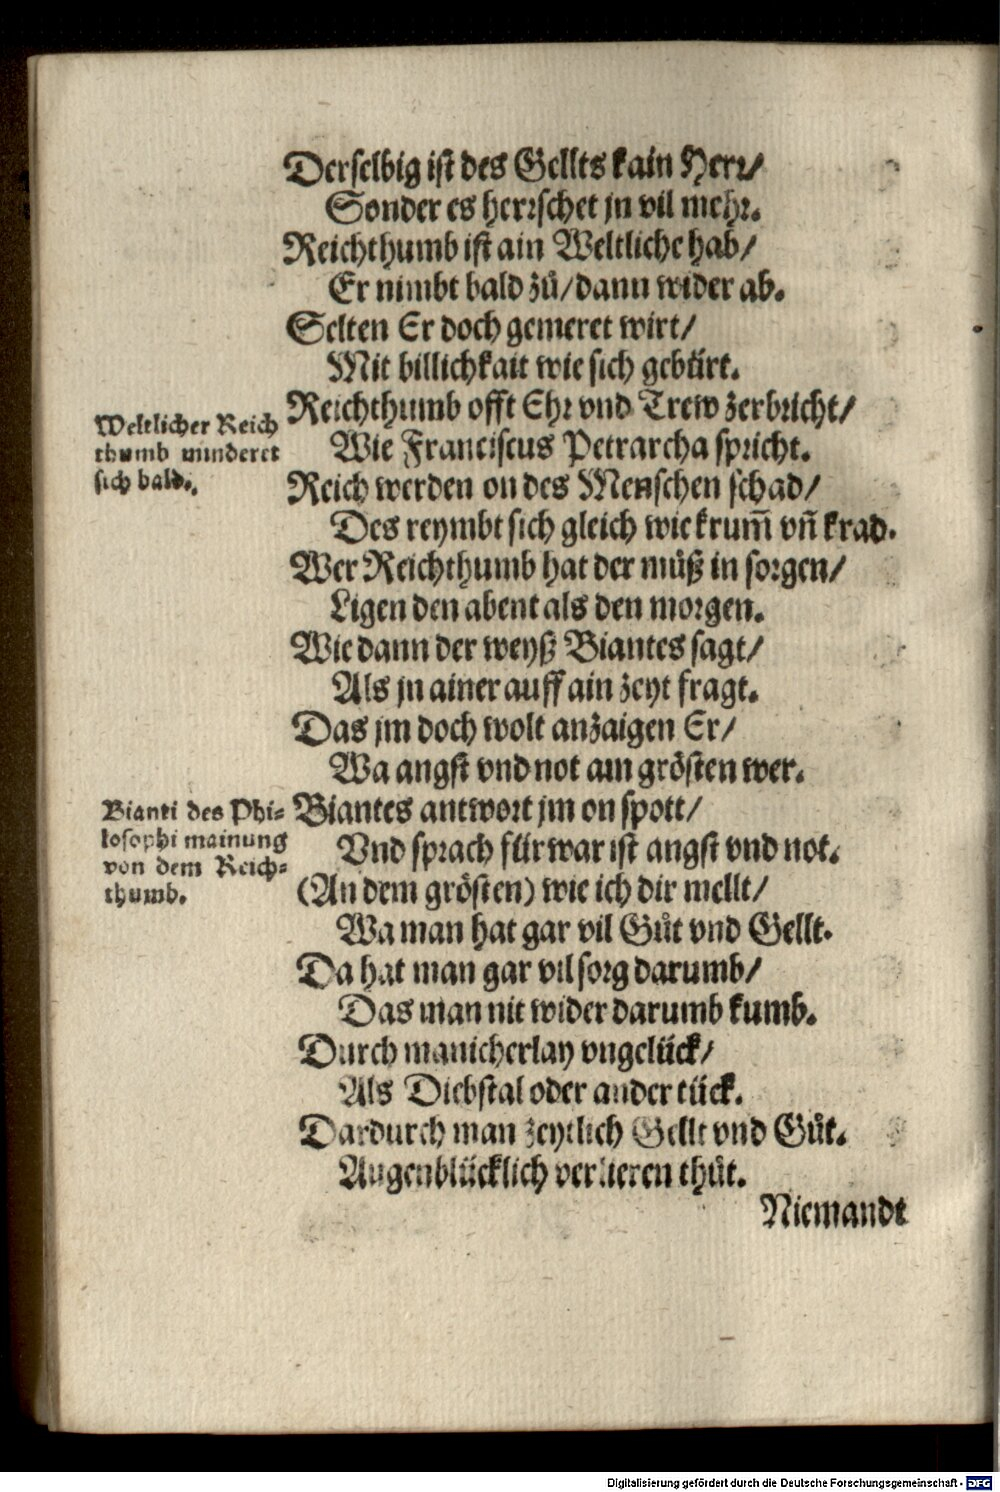 Derselbig ist des Gellts kain Herr/
Sonder es herrschet jn vil mehr.
Reichthumb ist ain Weltliche hab/
Er nimbt bald zů/dann wider ab.
Selten Er doch gemeret wirt/
Mit billichkait wie sich gebürt.
Reichthumb offt Ehr vnd Trew zerbricht/
Wie Franciscus Petrarcha spricht.
Weltlicher Reich
thumb minderet
sich bald.
Reich werden on des Menschen schad/
Des reymbt sich gleich wie krum̃ vñ krad.
Wer Reichthumb hat der můß in sorgen/
Ligen den abent als den morgen.
Wie dann der weyß Biantes sagt/
Als jn ainer auff ain zeyt fragt.
Das jm doch wolt anzaigen Er/
Wa angst vnd not am grösten wer.
Biantes antwort jm on spott/
Vnd sprach fürwar ist angst vnd not.
Bianti des Phi-
losophi mainung
von dem Reich-
thumb.
(An dem grösten) wie ich dir mellt/
Wa man hat gar vil Gůt vnd Gellt.
Da hat man gar vil sorg darumb/
Das man nit wider darumb kumb.
Durch manicherlay vngelück/
Als Diebstal oder ander tück.
Dardurch man zeytlich Gellt vnd Gůt.
Augenblücklich verlieren thůt.
Niemandt
Digitalisierung gefördert durch die Deutsche Forschungsgemeinschaft - DFG